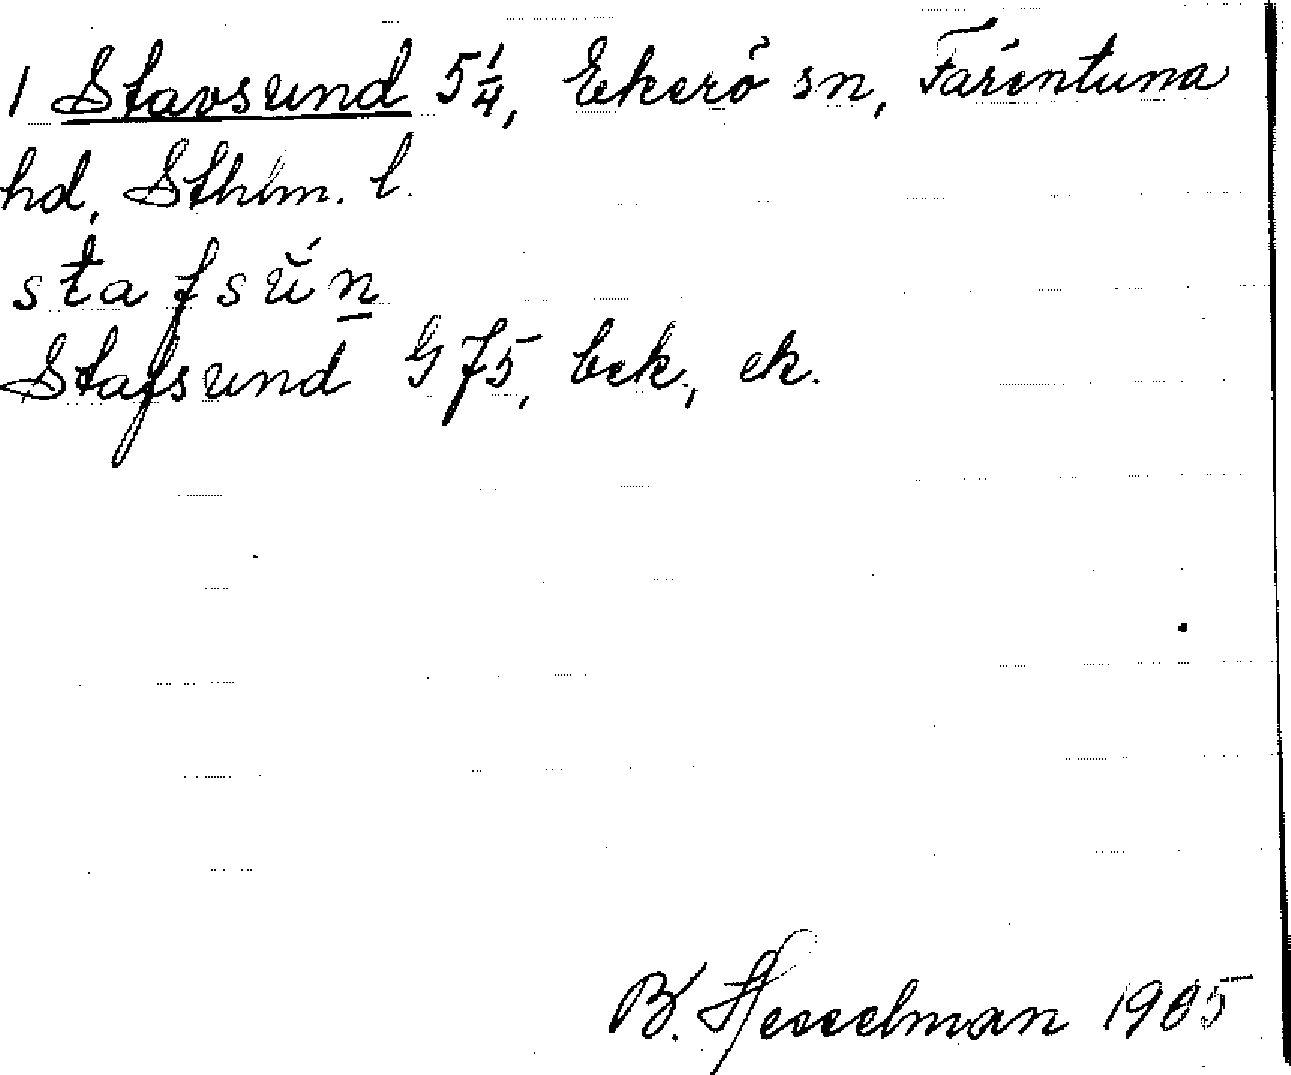 1 Stavsund 5 1/4, Ekerö sn, Färentuna
hd, Sthlm. l.
stafsŭ́n
Stafsund G 75, bek., ek.
B. Hesselman 1905